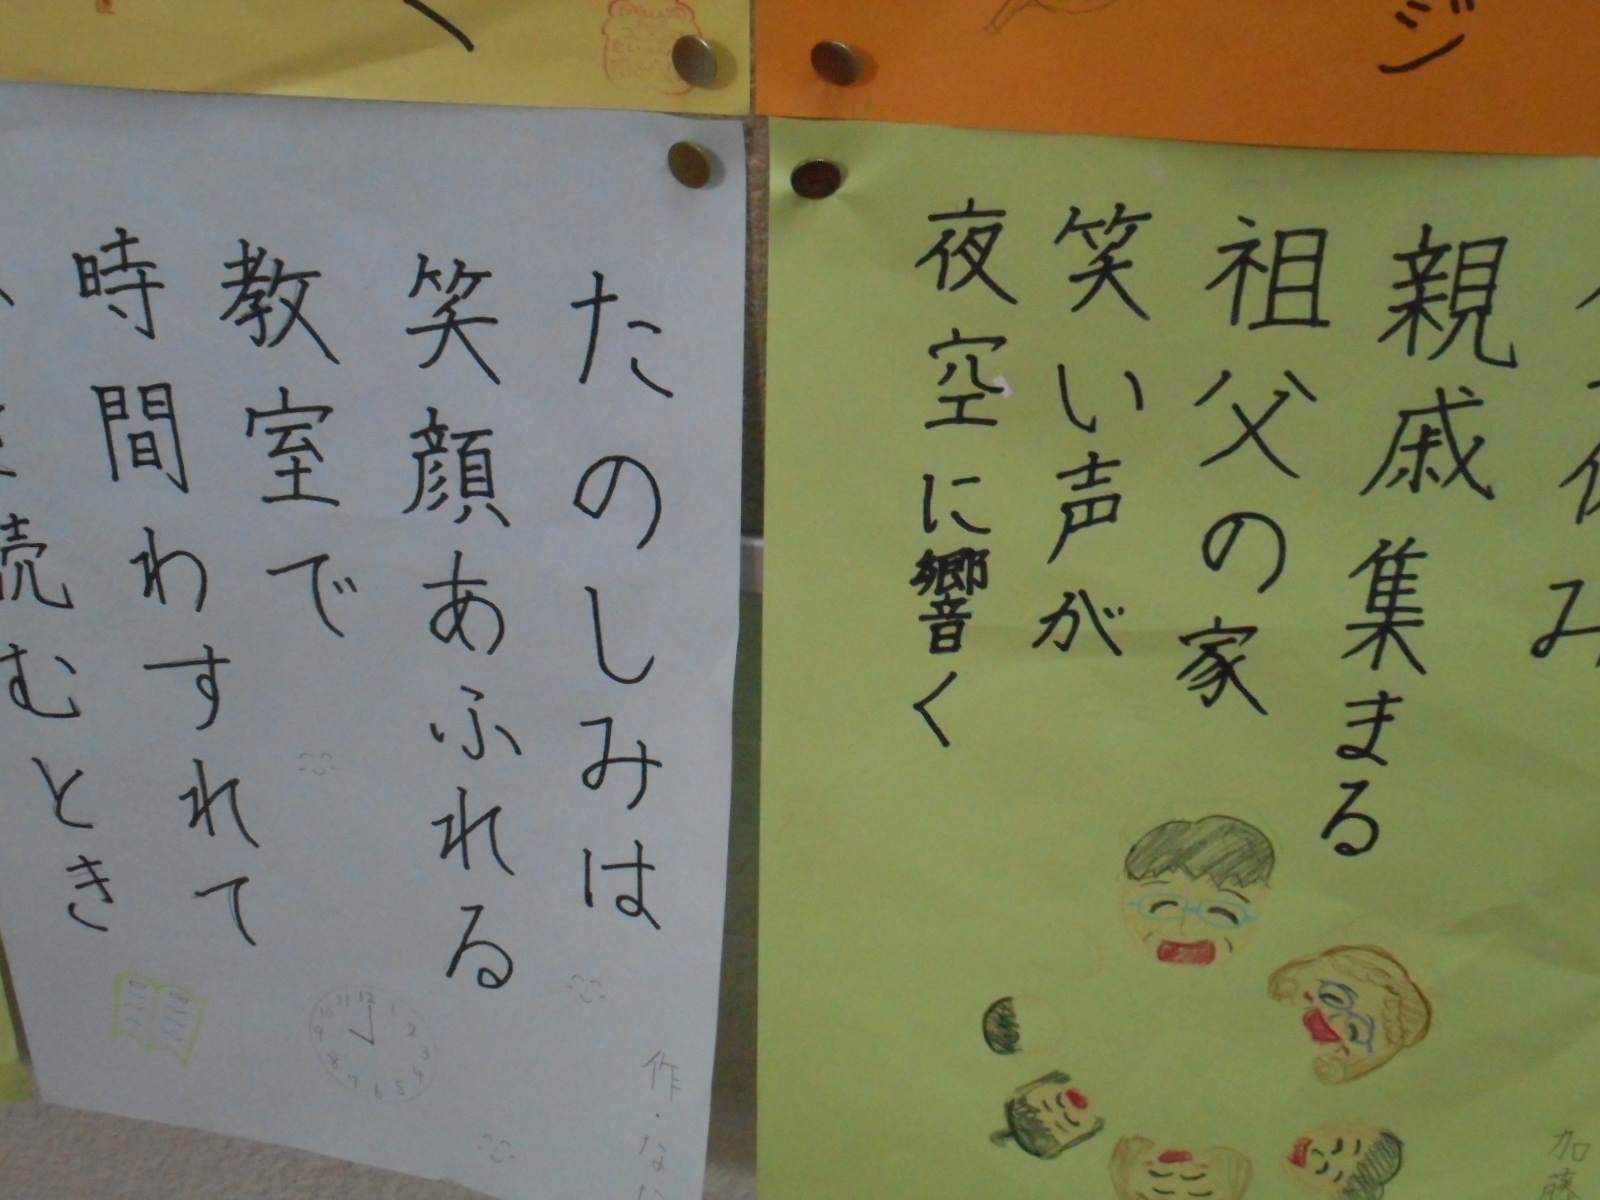 ジ
み
親戚集まる
祖父の家
笑い声が
夜空に響く
加藤
たのしみは
笑顔あふれる
教室で
時間わすれて
読むとき
作・な
12 1 2 3 4 5 6 7 8 9 10 11